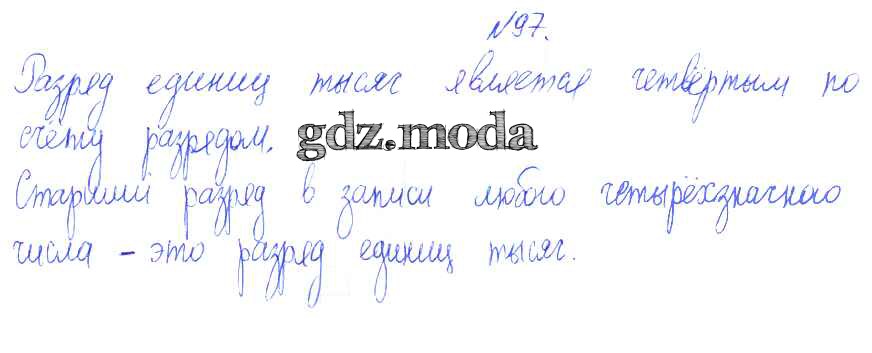 №97.
Разряд единиц тысяч является четвёртым по
счёту разрядом.
gdz.moda
Старший разряд в записи любого четырёхзначного
числа – это разряд единиц тысяч.